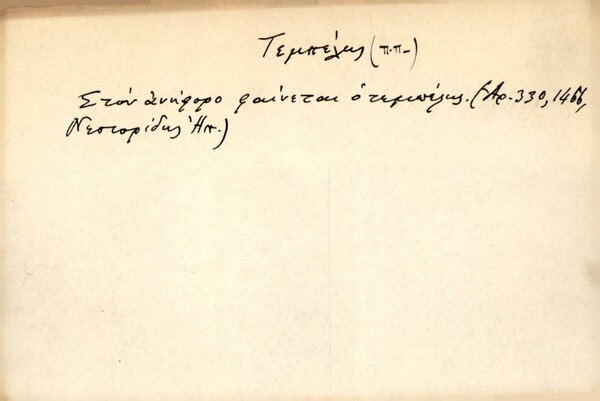 Τεμπέλης (π.π-)
Στόν ἀνήφορο φαίνεται ὁ τεμπέλης. (Ἀρ. 330, 1466,
Νεστορίδης Ἠπ.)